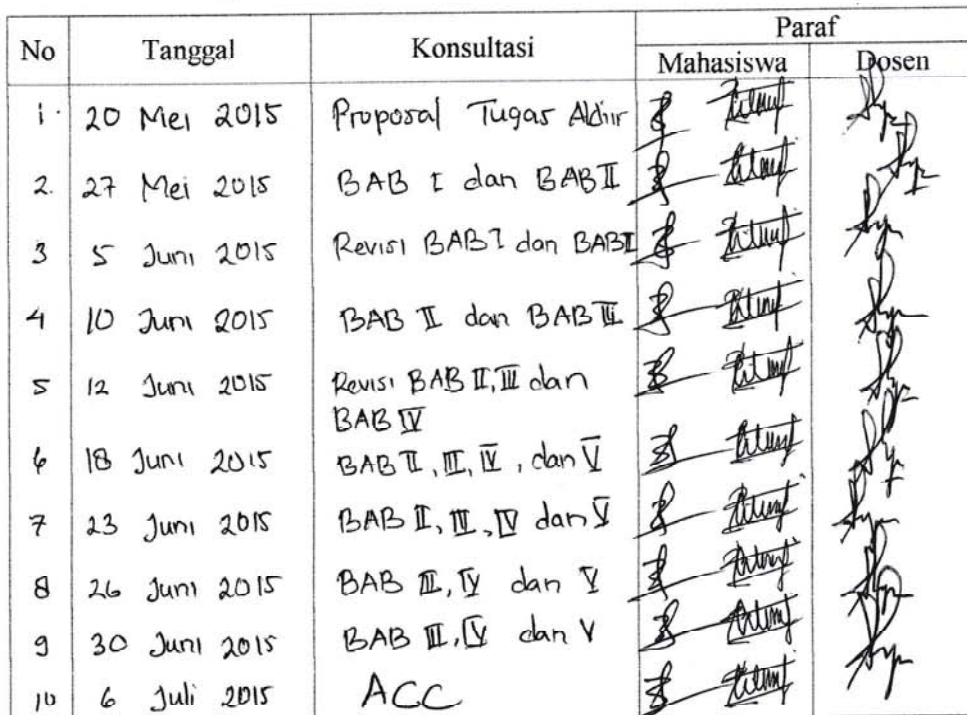 No Tanggal Konsultasi Paraf
Mahasiswa Dosen
1. 20 Mei 2015 Proposal Tugas Akhir
2. 27 Mei 2015 BAB I dan BAB II
3 5 Juni 2015 Revisi BAB I dan BAB I
4 10 Juni 2015 BAB II dan BAB III
5 12 Juni 2015 Revisi BAB II, III dan
BAB IV
6 18 Juni 2015 BAB II, III, IV, dan V
7 23 Juni 2015 BAB II, III, IV dan V
8 26 Juni 2015 BAB III, IV dan V
9 30 Juni 2015 BAB III, IV dan V
10 6 Juli 2015 ACC